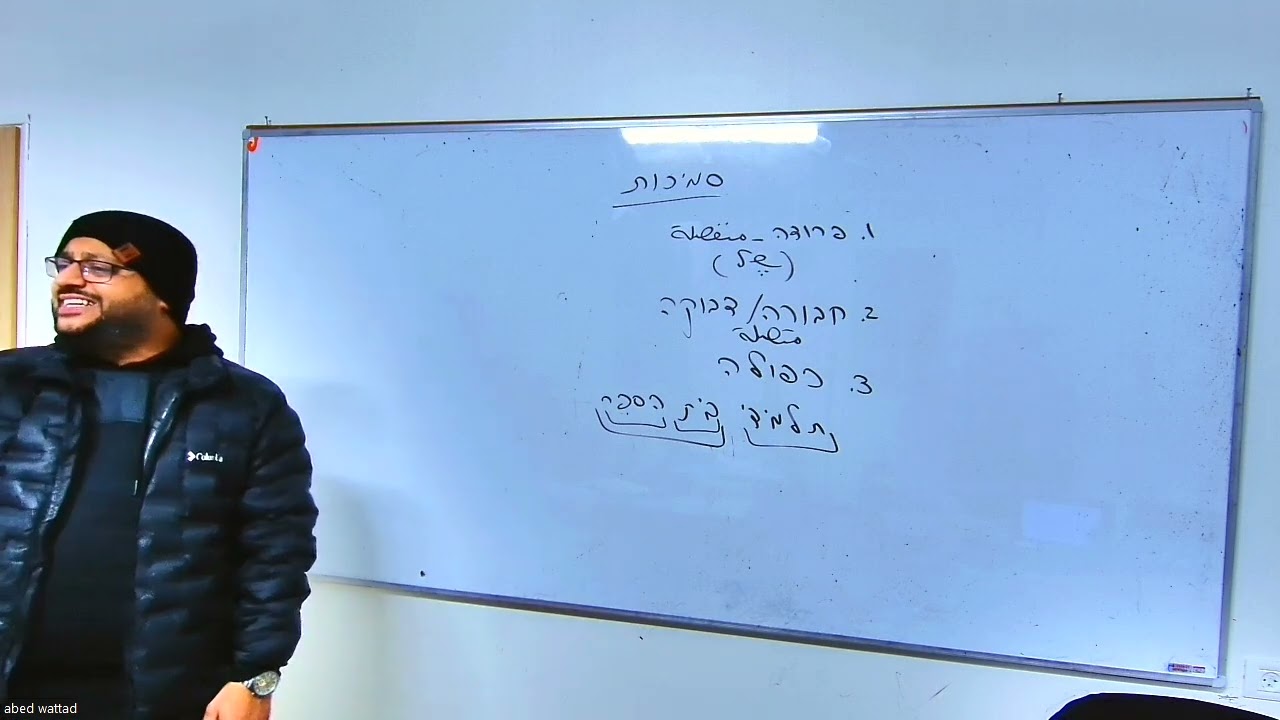 סמיכות
1. פרודה -
(שֶל)
2. חבורה/דבוקה
3. כפולה
תלמידי בית הספר
Columbia
abed wattad